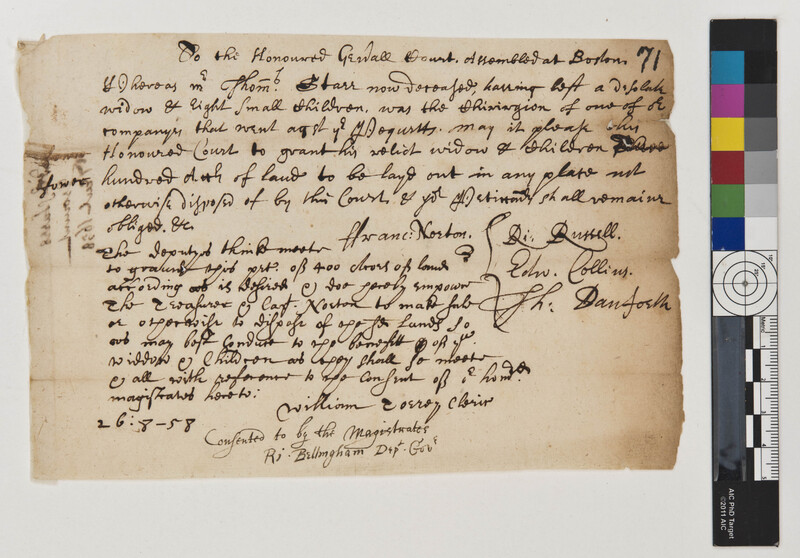 To the Honoured Gen'all Court. Assembled at Boston 71
Whereas mr Thoms. Starr now deceased, having left a desolate
widow & Eight small Children, was the Chirirgion of one of ye
companys that went agst ye Pequtts. may it please this
Honoured Court to grant his relict widow & Children
fower hundred Ack of land to be layd out in any place not
otherwise disposed of by this Court. & yor Petitionrs shall remaine
obliged. &c.
Franc: Norton. Ri: Russell.
Edw. Collins.
Th: Danforth
The deputys think meete
to graunt this pet. of 400 Acres of land
according as is desired & doe hereby empower
The Treasurer & Capt. Norton to make sale
or otherwise to dispose of the sd Lands so
as may best conduce to the benefit of ye sd
widdow & Children as they shall se meete
& all with reference to the Consent of or honord
magistrates hereto:
William Torrey Cleric
26: 8-58
Consented to by the Magistrates
Ri: Bellingham Dept. Govr
AIC PhD Target
©2011 AIC